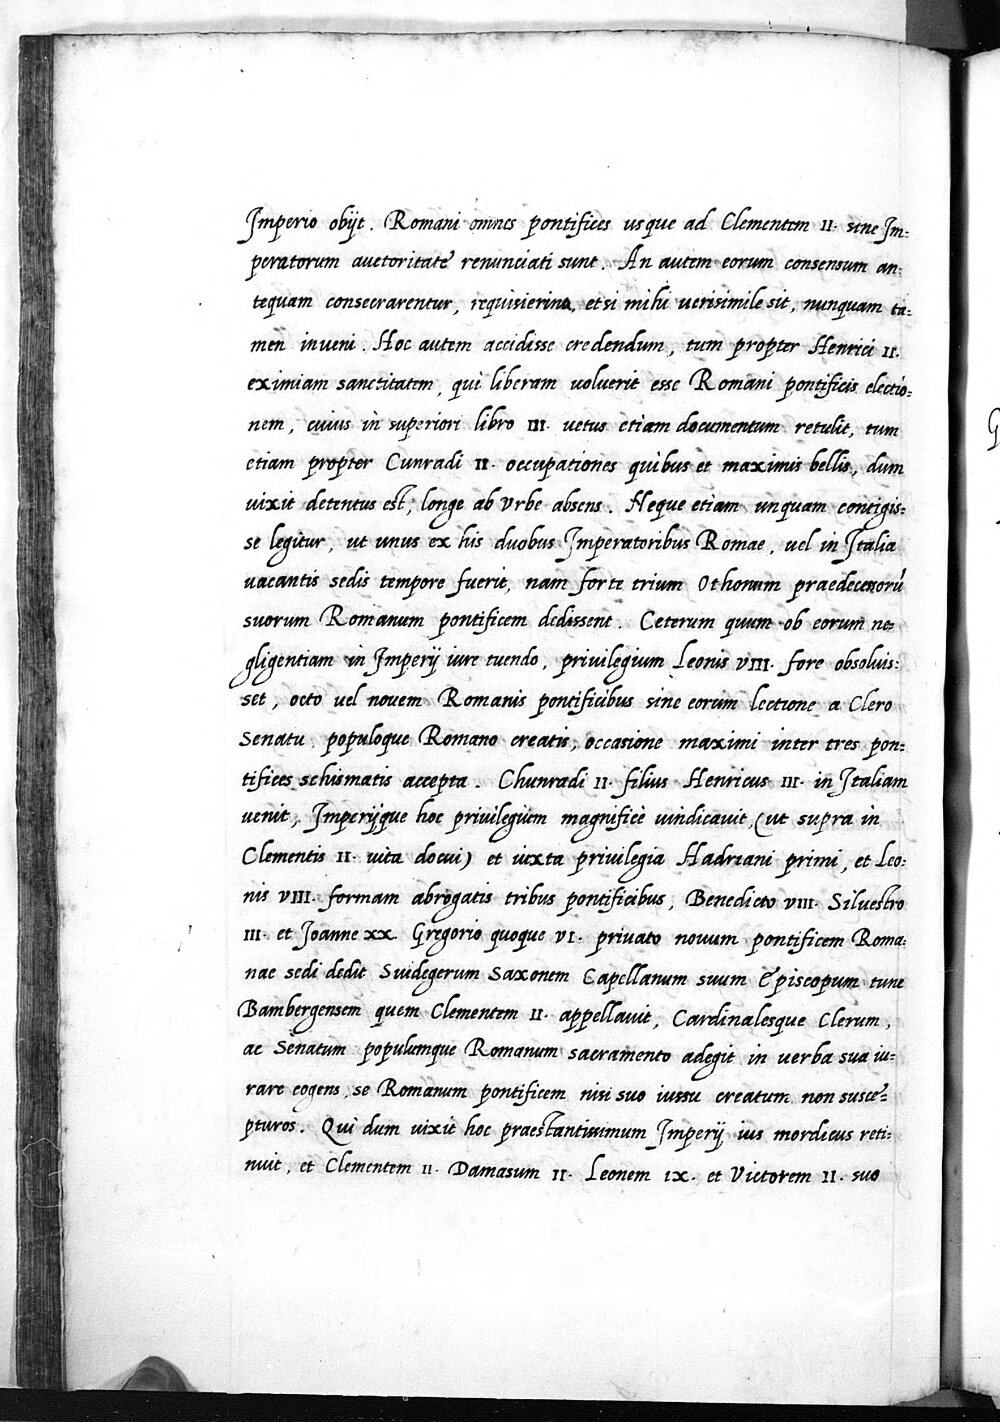 Imperio obijt. Romani omnes pontifices usque ad Clementem II. sine Im=
peratorum auctoritate renunciati sunt. An autem eorum consensum an=
tequam consecrarentur, requisierint, etsi mihi uerisimile sit, nunquam ta=
men inueni. Hoc autem accidisse credendum, tum propter Henrici II.
eximiam sanctitatem, qui liberam uoluerit esse Romani pontificis electio=
nem, cuius in superiori libro III. uetus etiam documentum retulit, tum
etiam propter Cunradi II. occupationes quibus et maximis bellis, dum
uixit detentus est, longe ab Vrbe absens. Neque etiam unquam contigis=
se legitur, ut unus ex his duobus Imperatoribus Romae, uel in Italia
uacantis sedis tempore fuerit, nam forte trium Othonum praedecessorū
suorum Romanum pontificem dedissent. Ceterum quum ob eorum ne=
gligentiam in Imperij iure tuendo, priuilegium Leonis VIII. fore obsoluis=
set, octo uel nouem Romanis pontificibus sine eorum lectione a Clero
Senatu populoque Romano creatis, occasione maximi inter tres pon=
tifices schismatis accepta. Chunradi II. filius Henricus III. in Italiam
uenit, Imperijque hoc priuilegium magnificè uindicauit, (ut supra in
Clementis II. uita docui) et iuxta priuilegia Hadriani primi, et Leo=
nis VIII. formam abrogatis tribus pontificibus, Benedicto VIII. Siluestro
III. et Joanne XX. Gregorio quoque VI. priuato nouum pontificem Roma=
nae sedi dedit Suidegerum Saxonem Capellanum suum Episcopum tunc
Bambergensem quem Clementem II. appellauit, Cardinalesque Clerum,
ac Senatum populumque Romanum sacramento adegit in uerba sua iu=
rare cogens, se Romanum pontificem nisi suo iussu creatum non susce=
pturos. Qui dum uixit hoc praestantissimum Imperij ius mordicus reti=
nuit, et Clementem II. Damasum II. Leonem IX. et Victorem II. suo